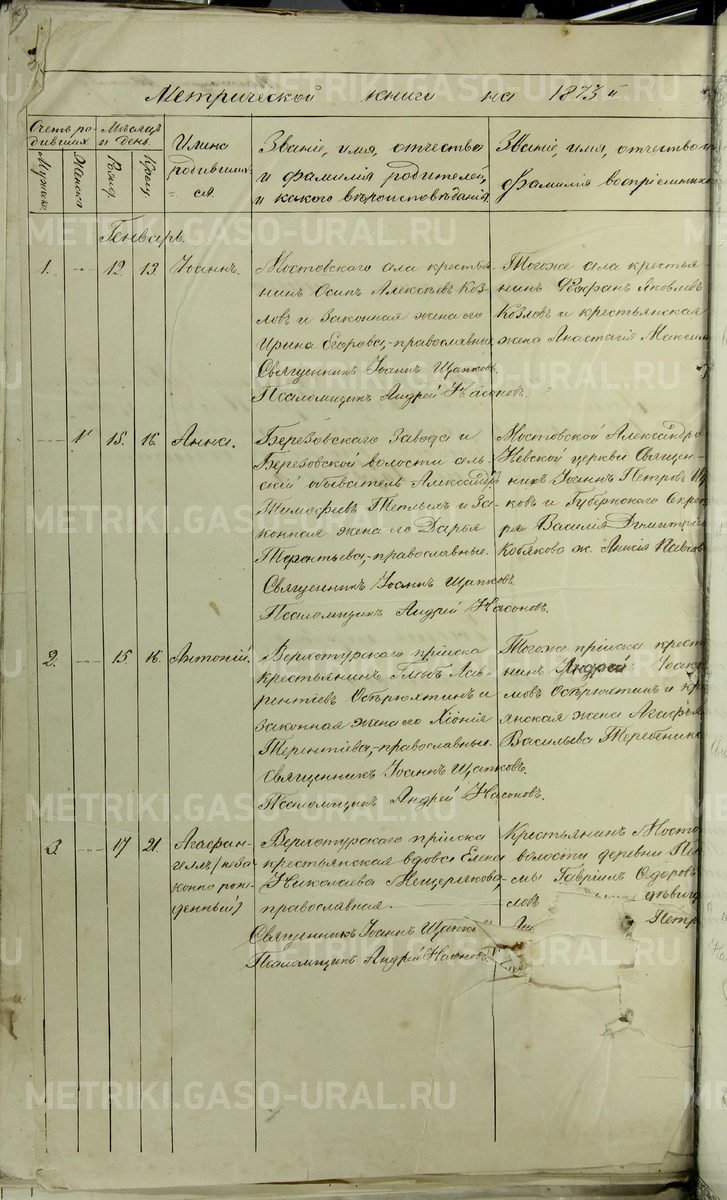 Метрической книги на 1873 й
Счетъ родившихся
Мѣсяцъ и день.
Имена родившихся.
Званіе, имя, отчество и фамилія родителей, и какого вѣроисповѣданія.
Званіе, имя, отчество и
фамилія воспріемник
Мужеска
Женска
Рожд.
Крещ.
Генварь.
1. 12. 13. Іоаннъ.
Мостовскаго села крестья-
нинъ Осипъ Алексѣевъ Коз-
ловъ и законная жена его
Ирина Егорова,-православные
Священникъ Іоаннъ Щапковъ.
Псаломщикъ Андрей Насоновъ.
Тогоже села крестья-
нинъ Ѳеофанъ Яковлевъ
Козловъ и крестьянская
жена Анастасія Максим
1. 15. 16. Анна.
Березовскаго Завода и
Березовской волости сель-
скій обыватель Александръ
Тимофіевъ Теплыхъ и за-
конная жена его Дарья
Терентьева,-православные.
Священникъ Іоаннъ Щапковъ.
Псаломщикъ Андрей Насоновъ.
Мостовской Александро
Невской церкви Священ-
никъ Іоаннъ Петровъ Ща
ковъ и Губернскаго Секре
ря Василія Димитріев
Кобякова ж. Анисія Павлов
2. 15 16. Антоній.
Верхотурскаго пріиска
крестьянинъ Глѣбъ Лав-
рентіевъ Остьрюхтинъ и
законная жена его Хіонія
Терентіева,-православные.
Священникъ Іоаннъ Щапковъ.
Псаломщикъ Андрей Насоновъ.
Тогоже пріиска крест
нинъ Андрей
мовъ Остьрюхтинъ и кре
янская жена Агафья
Васильева Теребнина
3. 17 21. Агафан-
гелъ (неза-
конно рож-
денный)
Верхотурскаго пріиска
крестьянская вдова Елена
Николаева Мещерякова,
православная.
Священникъ Іоаннъ Щапк
Псаломщикъ Андрей Насоновъ.
Крестьянинъ Мосто
волости деревни
Гавріилъ Ѳедоровъ
ловъ дѣвиц
Петр
METRIKI.GASO-URAL.RU
METRIKI.GASO-URAL.RU
METRIKI.GASO-URAL.RU
METRIKI.GASO-URAL.RU
METRIKI.GASO-URAL.RU
METRIKI.GASO-URAL.RU
METRIKI.GASO-URAL.RU
METRIKI.GASO-URAL.RU